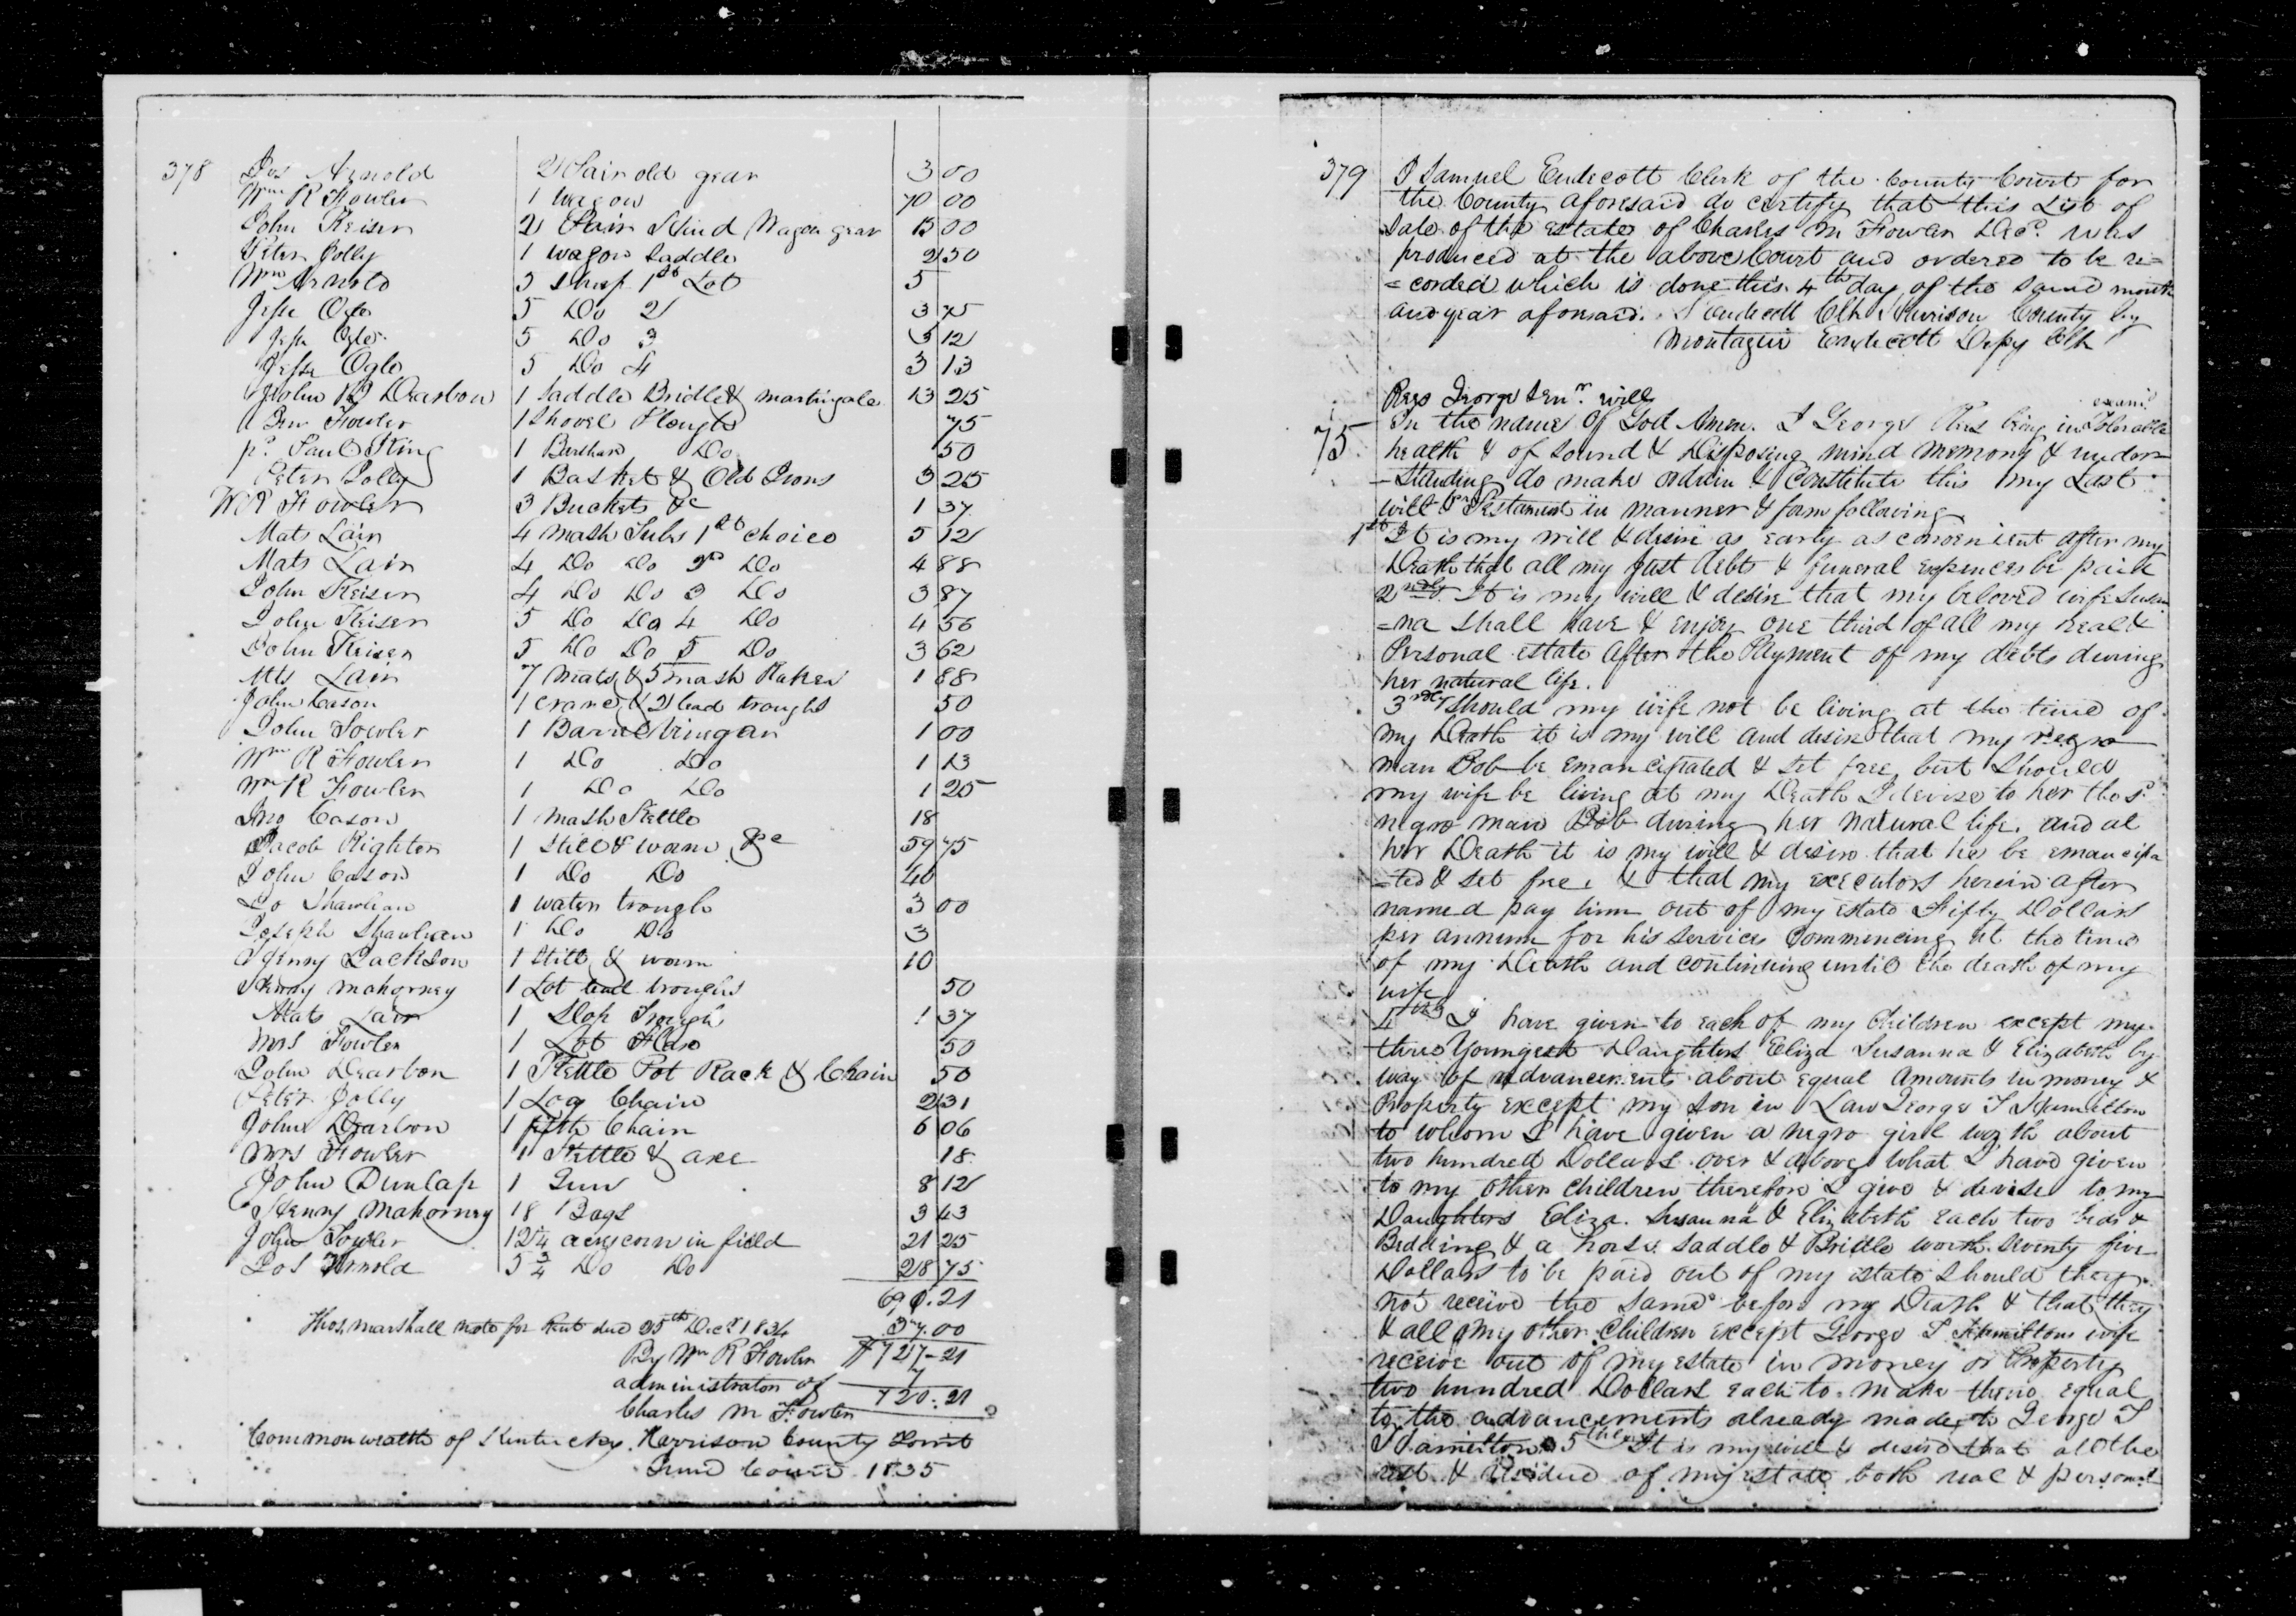 378 Jos Arnold 2 Pair old gear 3 00
Wm R Fowler 1 Wagon 70 00
John Keiser 2 Pair Hind Wagon gear 13 00
Peter Jolly 1 Wagon Saddle 2 50
Wm Arnold 5 Sheep 1st Lot 5
Jesse Ogle 5 Do 2 3 75
Jesse Ogle 5 Do 3 3 12
Jesse Ogle 5 Do 4 3 13
John R Dearbon 1 Saddle Bridle & martingale 13 25
Fowler 1 Shovel Plough 75
Paul King 1 Barshare Do 50
Peter Jolly 1 Basket & Old Irons 3 25
W R Fowler 3 Buckets &c 1 37
Mats Lair 4 mash Tubs 1st choice 5 12
Mats Lair 4 Do Do 2d Do 4 88
John Keiser 4 Do Do 3 Do 3 87
John Keiser 5 Do Do 4 Do 4 56
John Keiser 5 Do Do 5 Do 3 62
Mts Lair 7 Mats & 5 mash Rakes 1 88
John Cason 1 crane & 2 lead troughs 50
John Fowler 1 Barrel Vinegar 1 00
Wm R Fowler 1 Do Do 1 13
Wm R Fowler 1 Do Do 1 25
Jno Cason 1 mash Kettle 18
Jacob Righter 1 Still & worm &c 59 75
John Cason 1 Do Do 40
Do Shawhan 1 water trough 3 00
Joseph Shawhan 1 Do Do 3
Jenny Jackson 1 Still & worm 10
Henry Mahorney 1 Lot lead troughs 50
Mats Lair 1 Slop Trough 1 37
Mrs Fowler 1 Lot Flax 50
John Dearbon 1 Kettle Pot Rack & Chain 50
Peter Jolly 1 Log Chain 2 31
John Dearbon 1 fifth Chain 6 06
Mrs Fowler 1 Kettle & axe 18
John Dunlap 1 Gun 8 12
Henny Mahorney 18 Bags 3 43
John Fowler 12 1/4 acres corn in field 21 25
Jos Arnold 5 3/4 Do Do 28 75
690.21
Thos. Marshall Note for Rent due 25th Decr 1834 37.00
By Wm R Fowler $727-21
administrator of 7
Charles M Fowler 720.21
Commonwealth of Kentucky Harrison County Court
June Court 1835
379 I Samuel Endecott Clerk of the County Court for
the County aforesaid do certify that this List of
Sale of the estate of Charles M Fowler Decd. was
produced at the above Court and ordered to be re=
=corded which is done this 4th day of the same month
and year aforesaid. S Endecott Clk Harrison County by
Montague Endecott Depy Clk
Rees George Senr. will
examd
75 In the name of God Amen. I George Rees being in Tolerable
health & of Sound & Disposing mind memory & under=
=Standing do make ordain & Constitute this my Last
will & Testament in manner & form following
1st It is my will & desire as early as convenient after my
Death that all my just debts & funeral expences be paid
2ndly It is my will & desire that my beloved wife Susan
=na shall have & enjoy one third of all my real &
Personal estate after the Payment of my debts during
her natural life.
3rdly Should my wife not be living at the time of
my Death it is my will and desire that my negro
man Bob be emancipated & Set free, but Should
my wife be living at my Death I devise to her the sd.
negro man Bob during her natural life, and at
her Death it is my will & desire that he be emancipa
=ted & Set free, & that my executors herein after
named pay him out of my estate Fifty Dollars
per annum for his Services Commencing at the time
of my Death and continuing until the death of my
wife
4thly I have given to each of my Children except my
three Youngest Daughters Eliza Susanna & Elizabeth by
way of advancements about equal Amounts in money &
Property except my son in Law George T Hamilton
to whom I have given a negro girl worth about
two hundred Dollars over & above what I have given
to my other Children, therefore I give & devise to my
Daughters Eliza. Susanna & Elizabeth each two beds &
Bedding & a horse Saddle & Bridle worth Seventy five
Dollars to be paid out of my estate Should they
not receive the same before my Death & that they
& all my other Children except George T Hamiltons wife
receive out of my estate in money or Property
two hundred Dollars each to make them equal
to the advancements already made to George T
Hamilton 5thly It is my will & desire that all the
rest & residue of my estate both real & personal